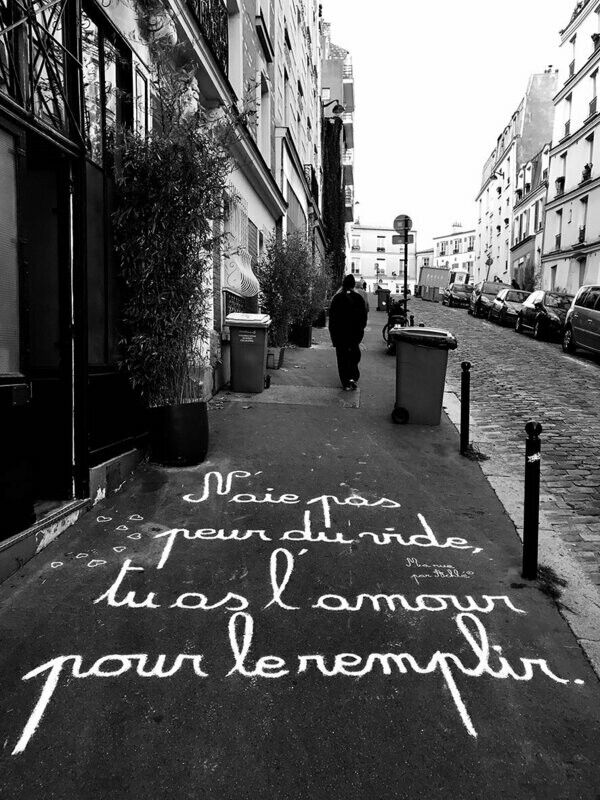 N'aie pas
peur du vide,
tu as l'amour
pour le remplir.
Ma rue
par